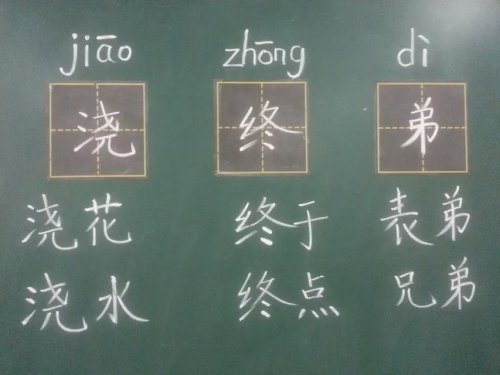 jiāo zhōng dì
浇 终 弟
浇花 终于 表弟
浇水 终点 兄弟